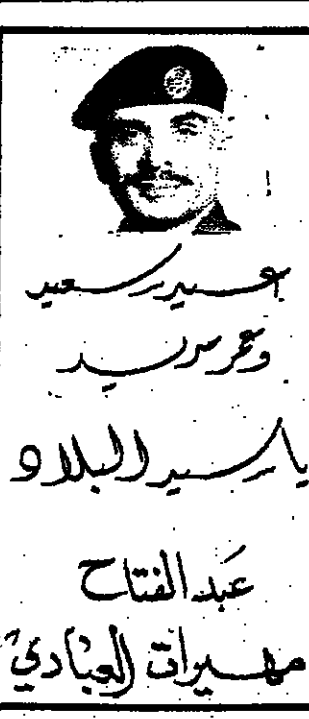 عــيد سعيد
وعمر مديد
يا سيد البلاد
عَبد الفتاح
مهيرات العبادي